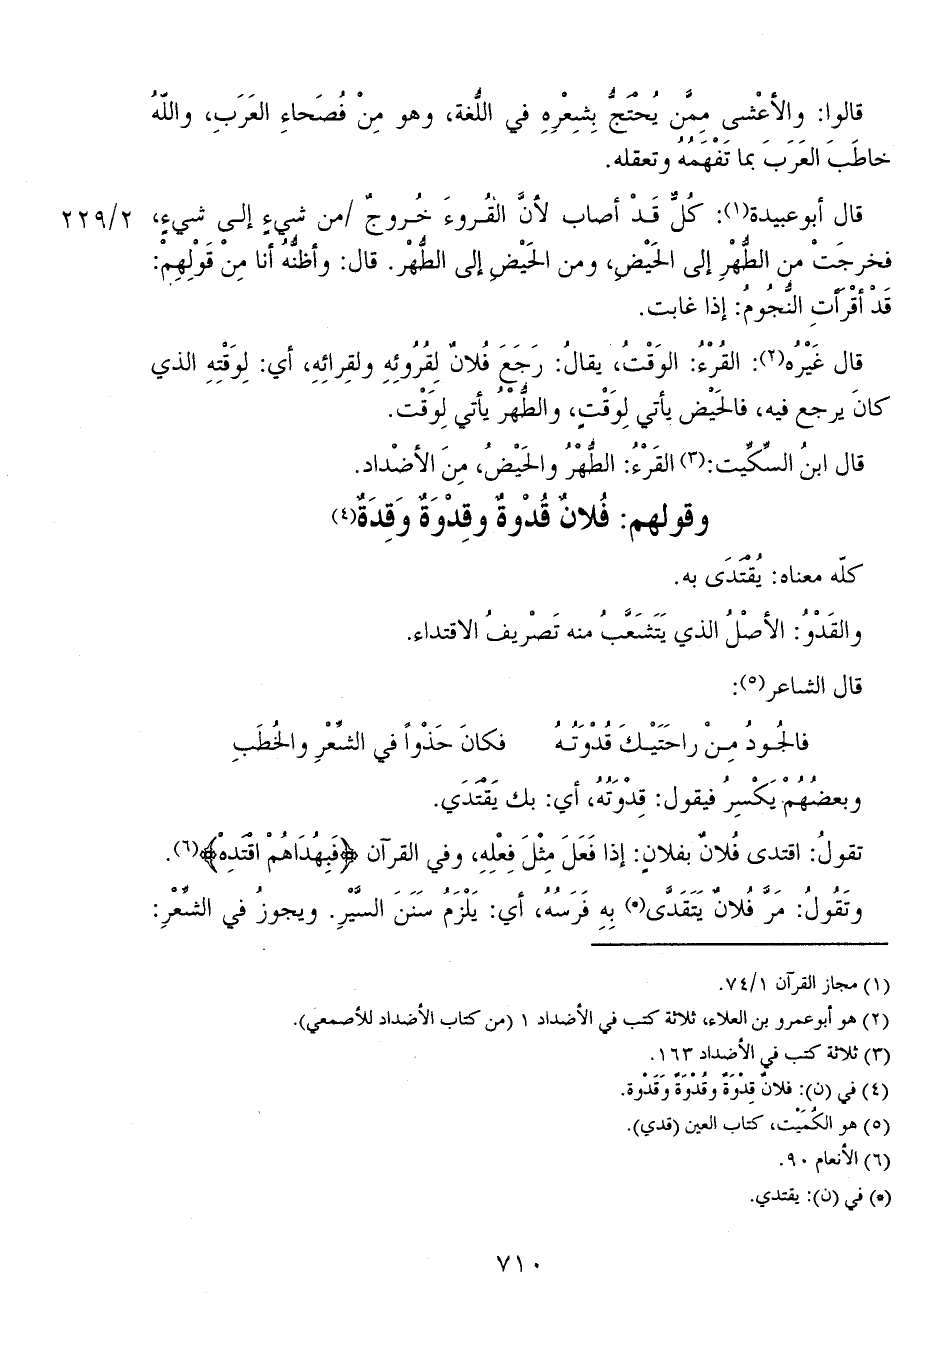 قالوا: والأعْشى مِمَّن يُحْتَجُّ بِشِعْرِهِ في اللُّغة، وهو مِنْ فُصَحاءِ العَرَبِ، واللّهُ
خاطَبَ العَرَبَ بما تَفْهَمُهُ وتعقله.
قال أبوعبيدة(١): كُلٌّ قَدْ أصاب لأنَّ القُروءَ خُروجٌ /من شيءٍ إلى شيءٍ، ٢٢٩/٢
فخرجَتْ من الطُّهْرِ إلى الحَيْضِ، ومن الحَيْضِ إلى الطُّهْر. قال: وأظنُّهُ أنا مِنْ قَوْلِهِمْ:
قَدْ أقْرَأتِ النُّجُومُ: إذا غابت.
قال غَيْرُه(٢): القُرْءُ: الوَقْتُ، يقالُ: رَجَعَ فُلانٌ لِقُرُوئِهِ ولقرائِهِ، أي: لِوَقْتِهِ الذي
كانَ يرجع فيه، فالحَيْض يأتي لِوَقْتٍ، والطُّهْرُ يأتي لِوَقْت.
قال ابنُ السِّكِّيت:(٣) القَرْءُ: الطُّهْرُ والحَيْضُ، مِنَ الأضْداد.
وقولهم: فُلانٌ قُدْوةٌ وقِدْوَةٌ وَقِدَةٌ(٤)
كلّه معناه: يُقْتَدَى به.
والقَدْوُ: الأصْلُ الذي يَتَشَعَّبُ منه تَصْريفُ الاقتداء.
قال الشاعر(٥):
فالجُودُ مِنْ راحَتَيْكَ قُدْوَتُهُ فكانَ حَذْواً في الشِّعْرِ والخُطَبِ
وبعضُهُمْ يَكْسِرُ فيقول: قِدْوَتُهُ، أي: بك يَقْتَدَي.
تقولُ: اقتدى فُلانٌ بفلانٍ: إذا فَعَلَ مِثْلَ فِعْلِهِ، وفي القرآن ﴿فَبِهُدَاهُمْ اقْتَدِهْ﴾(٦).
وتَقُولُ: مَرَّ فُلانٌ يَتَقَدَّى(*) بِهِ فَرَسُهُ، أي: يَلْزَمُ سَنَنَ السيَّرِ. ويجوزُ في الشِّعْرِ:
(١) مجاز القرآن ٧٤/١.
(٢) هو أبوعمرو بن العلاء، ثلاثة كتب في الأضداد ١ (من كتاب الأضداد للأصمعي).
(٣) ثلاثة كتب في الأضداد ١٦٣.
(٤) في (ن): فلانٌ قِدْوَةٌ وقُدْوَةٌ وَقَدْوة.
(٥) هو الكُمَيْت، كتاب العين (قدي).
(٦) الأنعام ٩٠.
(*) في (ن): يقتدي.
٧١٠